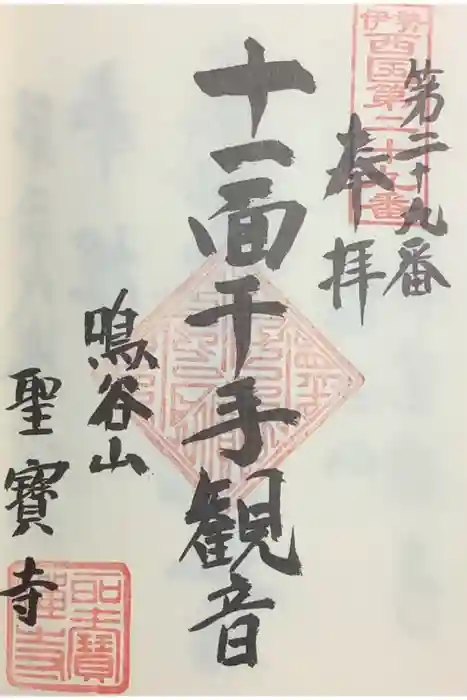 伊勢
西国第二十九番
第二十九番
奉拝
十一面千手観音
鳴谷山
聖寳寺
聖寳禅寺